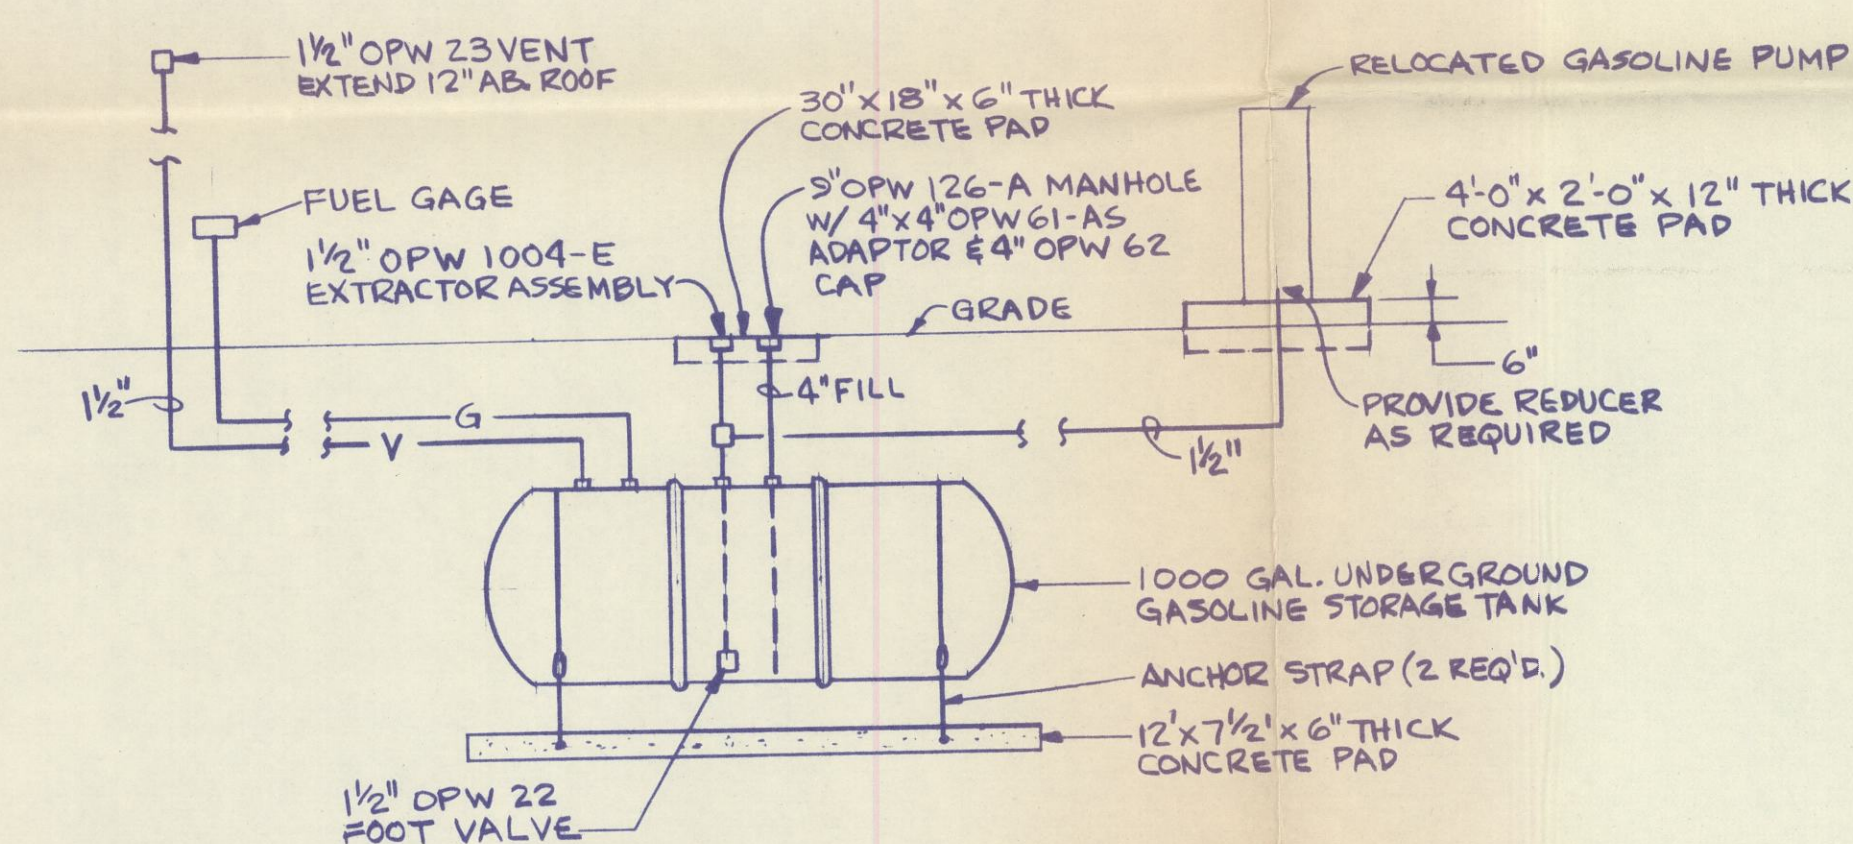 1½" OPW 23 VENT
EXTEND 12" AB. ROOF
30" x 18" x 6" THICK
CONCRETE PAD
RELOCATED GASOLINE PUMP
FUEL GAGE
1½" OPW 1004-E
EXTRACTOR ASSEMBLY
9" OPW 126-A MANHOLE
W/ 4" x 4" OPW 61-AS
ADAPTOR & 4" OPW 62
CAP
4'-0" x 2'-0" x 12" THICK
CONCRETE PAD
GRADE
6"
1½"
G
V
4" FILL
PROVIDE REDUCER
AS REQUIRED
1½"
1000 GAL. UNDERGROUND
GASOLINE STORAGE TANK
ANCHOR STRAP (2 REQ'D.)
12' x 7½' x 6" THICK
CONCRETE PAD
1½" OPW 22
FOOT VALVE